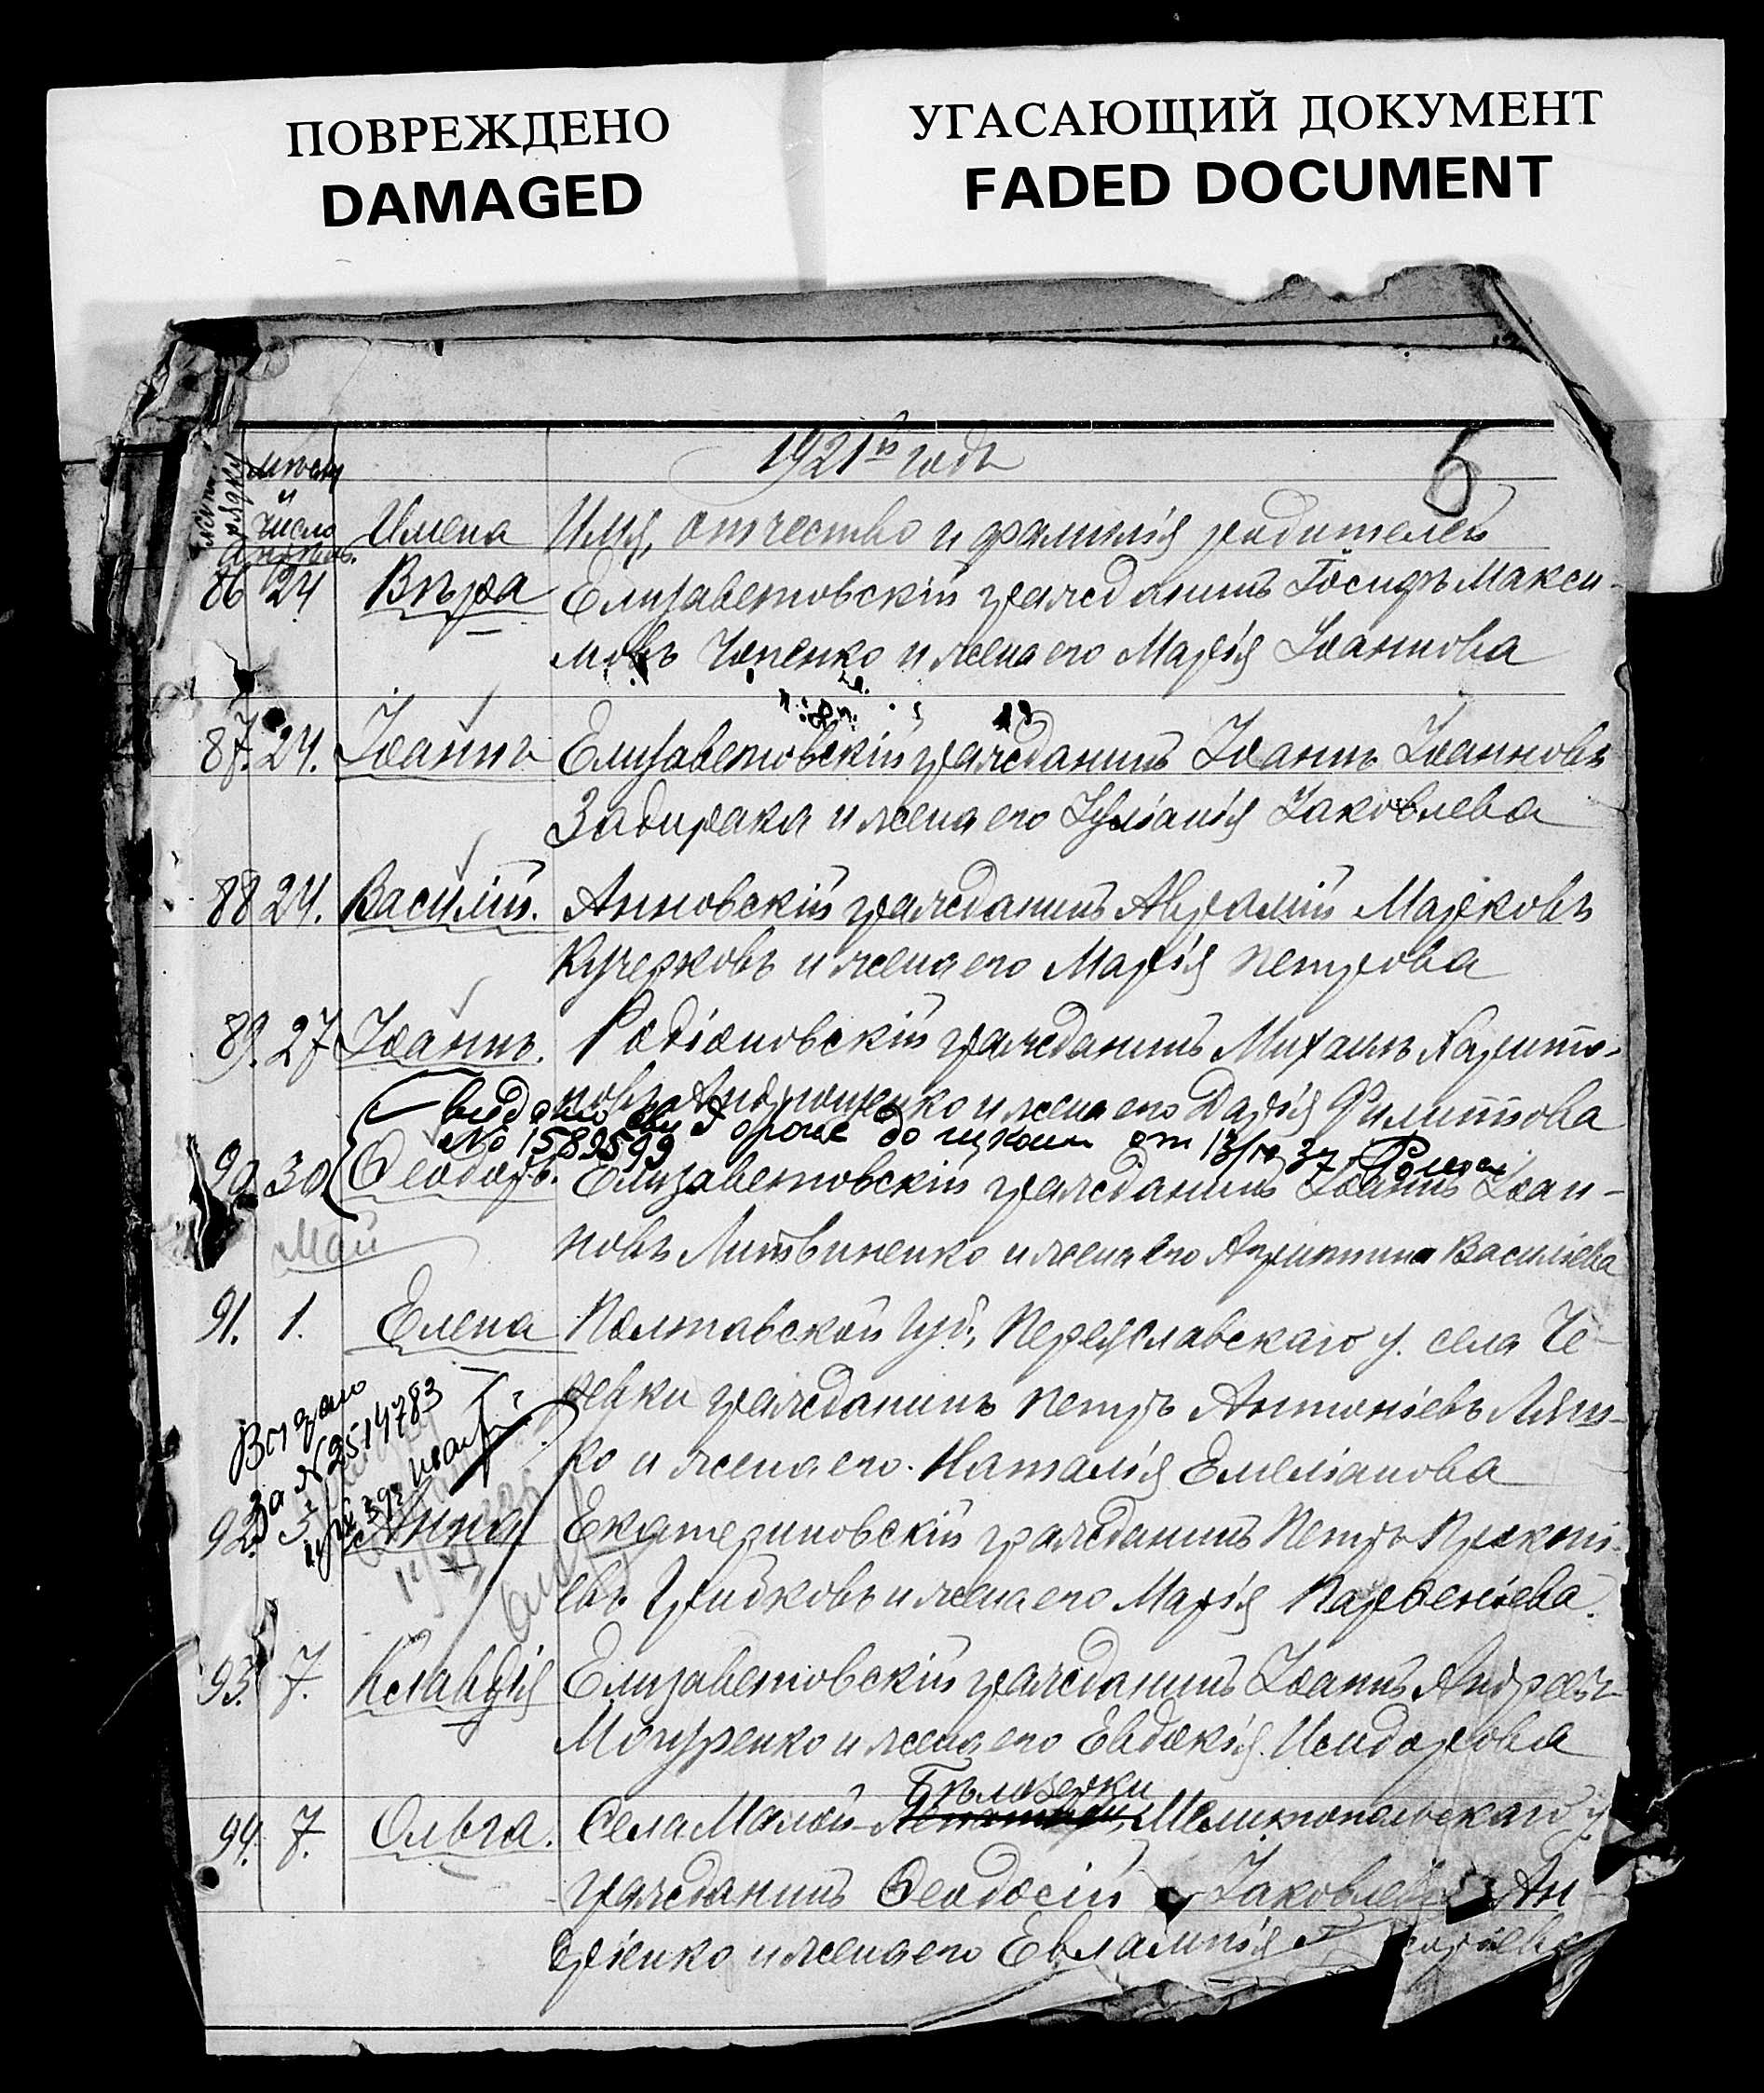 ПОВРЕЖДЕНО
DAMAGED
УГАСАЮЩИЙ ДОКУМЕНТ
FADED DOCUMENT
1921й годъ
6
и число Имена Имя, отчество и фамилія родителей
86 24 Вѣра Елизаветовскій гражданинъ Іосифъ Макси-
мовъ Чепенко и жена его Марія Іоаннова
87. 24. Іоаннъ Елизаветовскій гражданинъ Іоаннъ Іоанновъ
Задирака и жена его Іуліанія Іаковлева
88 24. Василій. Анновскій гражданинъ Аврамій Марковъ
Кучерковъ и жена его Марія Петрова
89. 27 Іоаннъ. Родіоновскій гражданинъ Михаилъ Харито-
новъ Андрющенко и жена его Дарія Филиппова
видано до от 13/IV 37
№ 1589599
90 30 Ѳеодоръ. Елизаветовскій гражданинъ Іоаннъ Іоан-
новъ Литвиненко и жена его Агриппина Василіева
Май
91. 1. Елена Полтавской губ., Переяславскаго у. села Че-
певки гражданинъ Петръ Антоніевъ Ляш-
ко и жена его Наталія Емеліанова
Видано
за № 2514783
92. 3. Анна Екатериновскій гражданинъ Петръ Прокопі-
евъ Грибковъ и жена его Марія Парѳеніева.
93. 7. Клавдія Елизаветовскій гражданинъ Іоаннъ Андреевъ
Могуренко и жена его Евдокія Исидорова
Бѣлозерки
94. 7. Ольга. Села Малой Мелитопольскаго у
гражданинъ Ѳеодосій Іаковлевъ Ан-
дріенко и жена его Евлампія